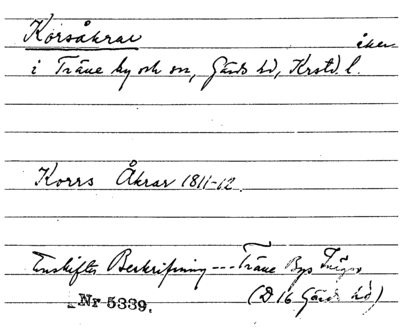 Korsåkrar
åker
i Träne by och sn, Gärds hd, Krstd. l.
Korrs Åkrar 1811-12.
Enskiftes Beskrifning --- Träne Bys Inägor
(D 16 Gärds hd)
Nr 5339.